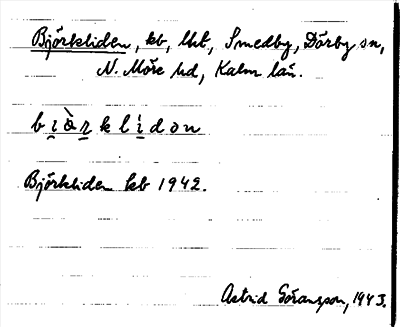 Björkliden, kb, lht, Smedby, Dörby sn,
N. Möre hd, Kalm län.
biàrklídon
Björkliden kb 1942.
Astrid Göransson, 1943.